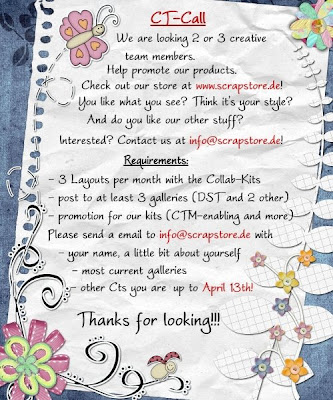 CT-Call
We are looking 2 or 3 creative
team members.
Help promote our products.
Check out our store at www.scrapstore.de!
You like what you see? Think it's your style?
And do you like our other stuff?
Interested? Contact us at info@scrapstore.de!
Requirements:
- 3 Layouts per month with the Collab-Kits
- post to at least 3 galleries (DST and 2 other)
- promotion for our kits (CTM-enabling and more)
Please send a email to info@scrapstore.de with
- your name, a little bit about yourself
- most current galleries
- other Cts you are up to April 13th!
Thanks for looking!!!